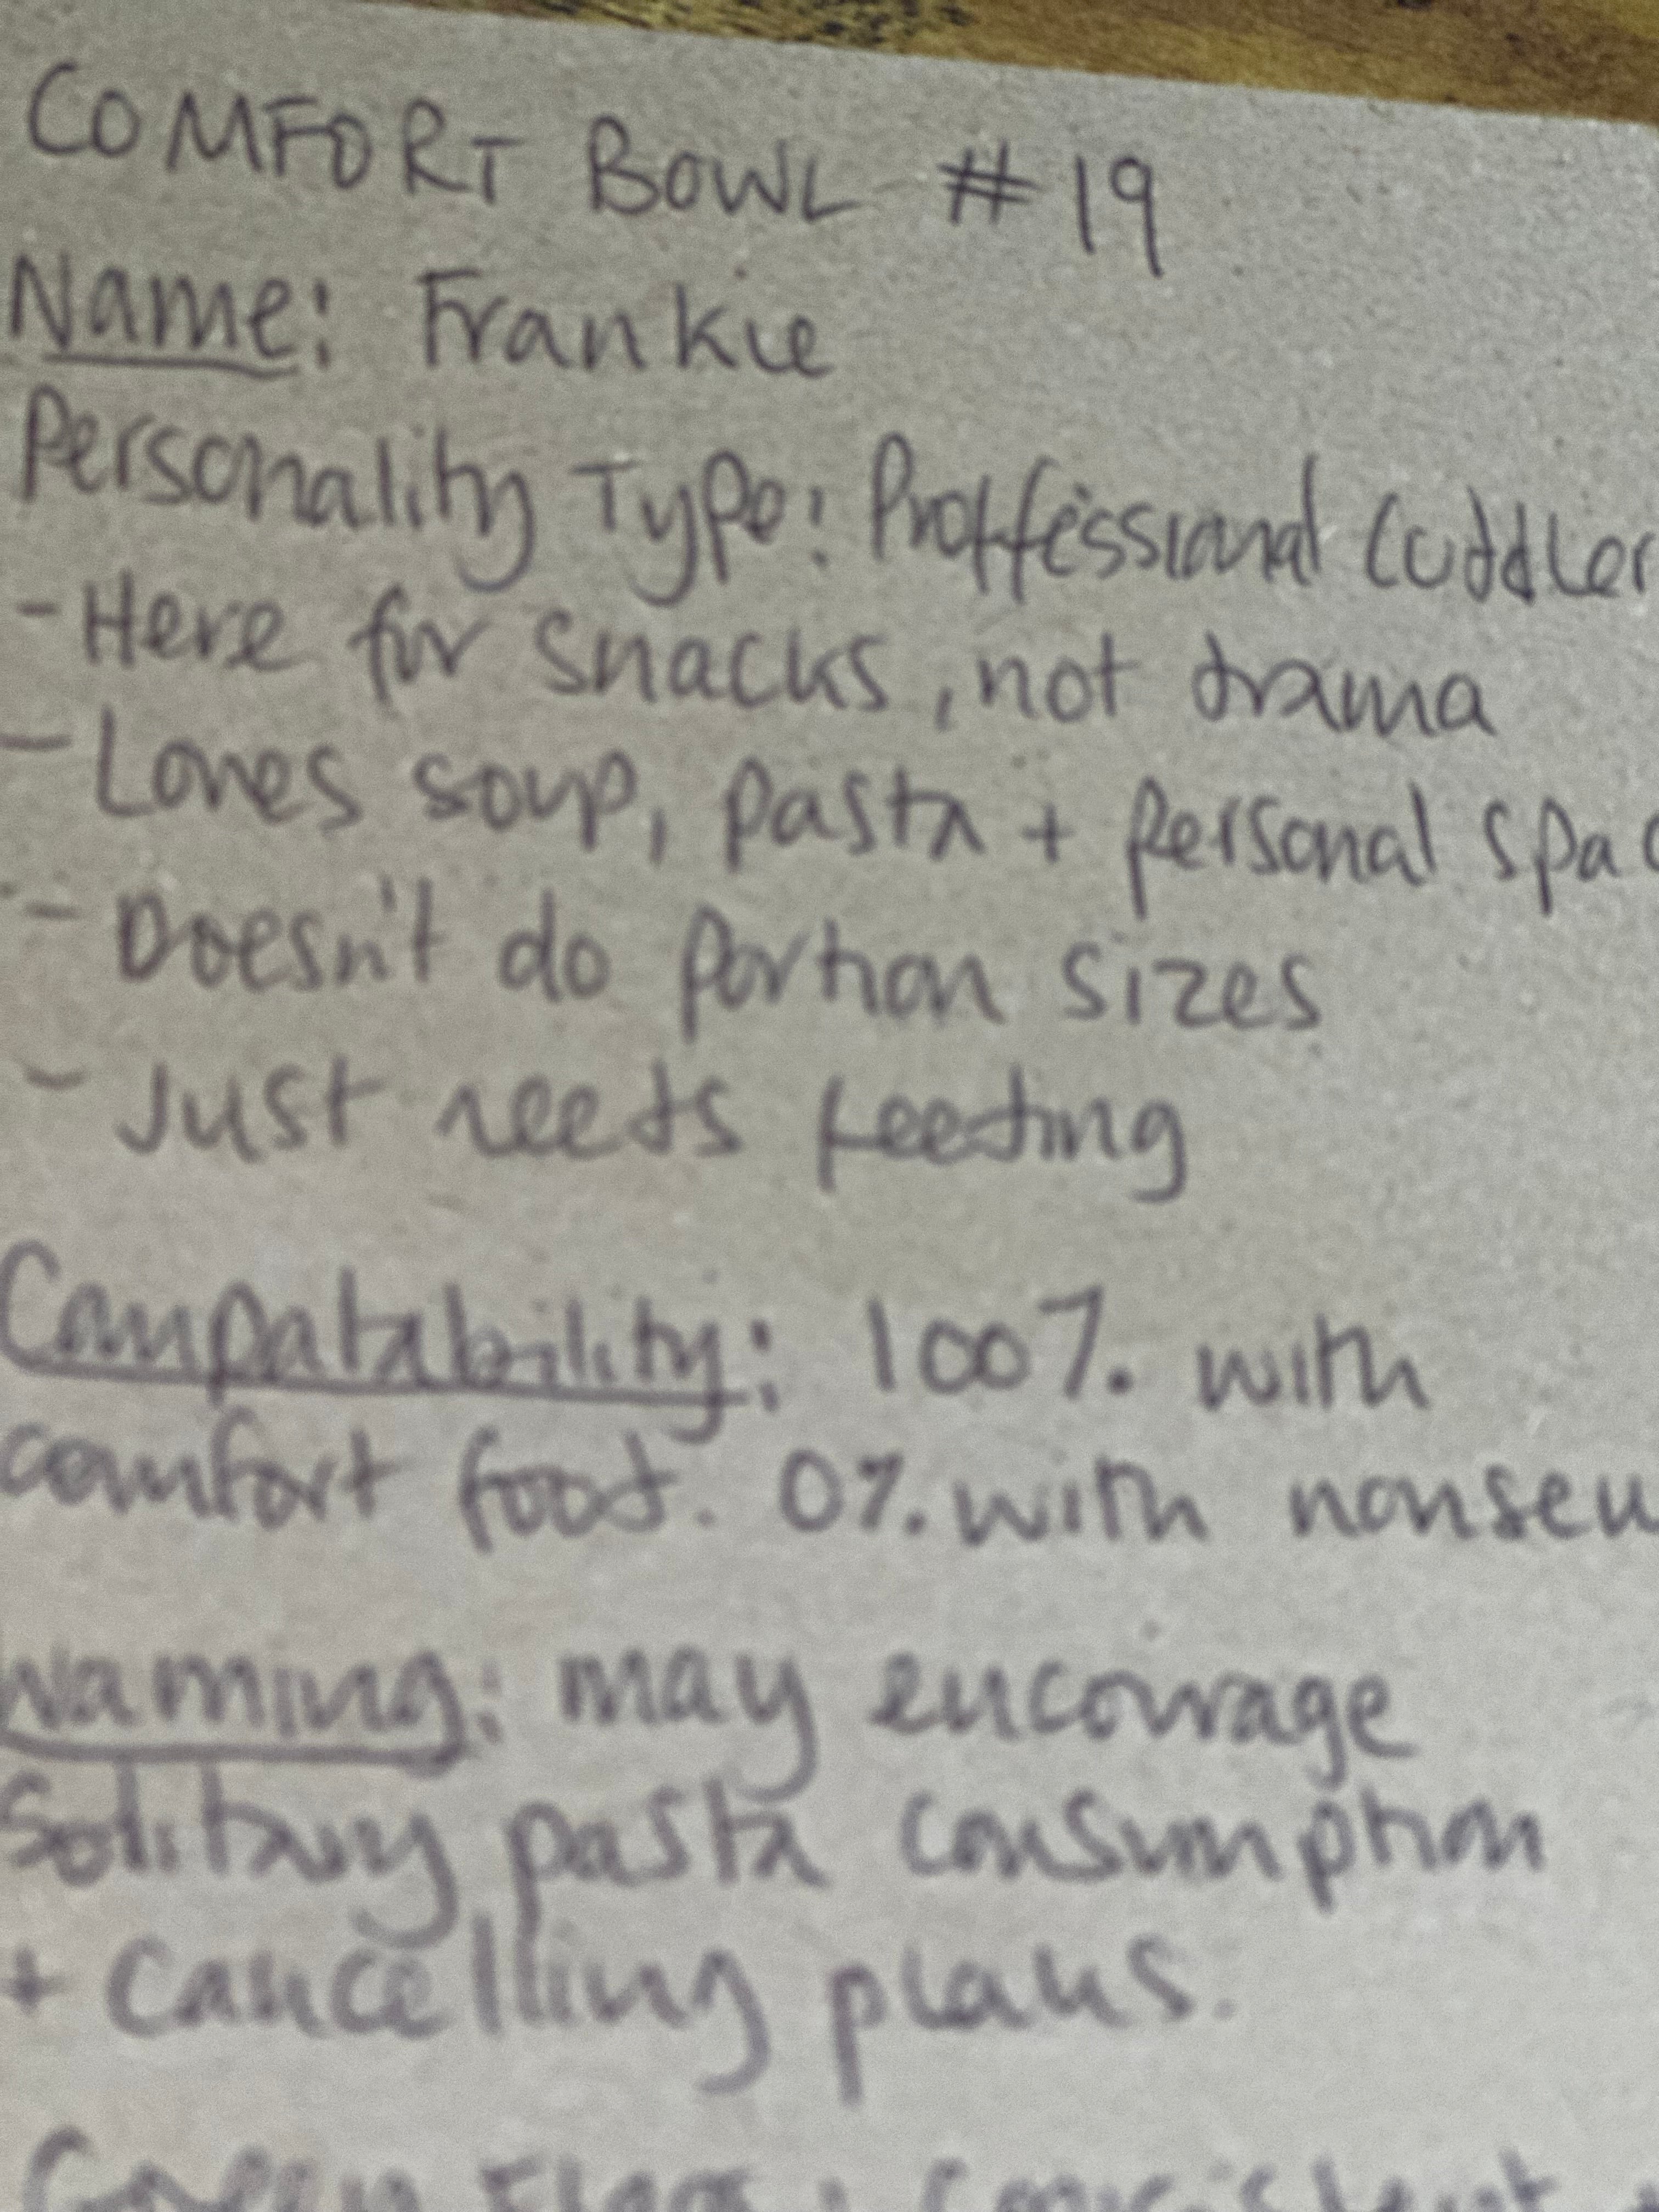 COMFORT BOWL #19
Name: Frankie
Personality Type: Proffessional Cuddler
- Here for snacks, not drama
- Loves soup, pasta + personal spac
- Doesn't do portion sizes
- Just needs feeding
Compatability: 100% with
comfort food. 0% with nonsen
Warning: may encourage
solitary pasta consumption
+ cancelling plans.
Green Flags: consistent